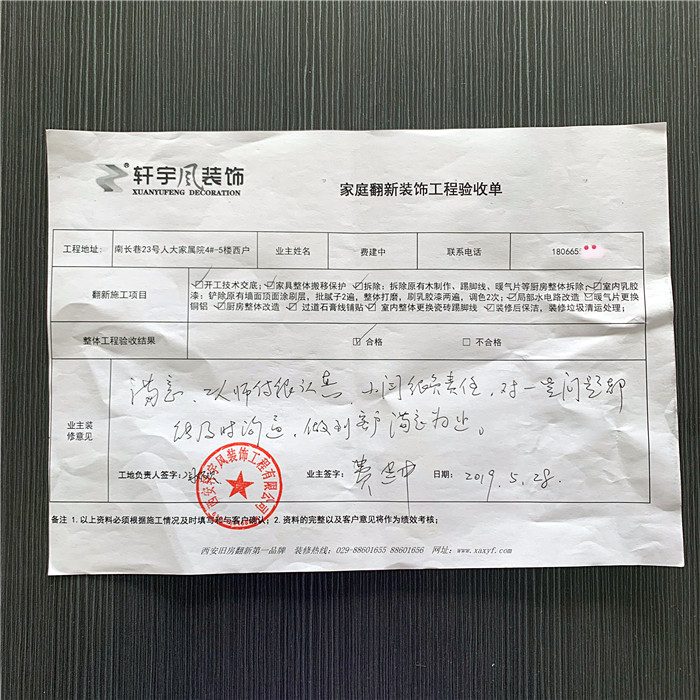 轩宇风装饰
XUANYUFENG DECORATION
家庭翻新装饰工程验收单
工程地址: 南长巷23号人大家属院4#-5楼西户 业主姓名 费建中 联系电话 18066
翻新施工项目
开工技术交底; 家具整体搬移保护 拆除: 拆除原有木制作、踢脚线、暖气片等厨房整体拆除; 室内乳胶
漆: 铲除原有墙面顶面涂刷层, 批腻子2遍, 整体打磨, 刷乳胶漆两遍, 调色2次; 局部水电路改造 暖气片更换
铜铝 厨房整体改造 过道石膏线铺贴 室内整体更换瓷砖踢脚线 装修后保洁, 装修垃圾清运处理;
整体工程验收结果 ☑ 合格 □ 不合格
业主装
修意见
满意, 工人师付很认真, 小闫很负责任, 对一些问题都
能及时沟通, 做到客户满意为止。
工地负责人签字: 业主签字: 费建中 日期: 2019.5.28.
西安轩宇风装饰工程有限公司
备注 1.以上资料必须根据施工情况及时填写和与客户确认; 2.资料的完整以及客户意见将作为绩效考核;
西安旧房翻新第一品牌 装修热线: 029-88601655 88601656 网址: www.xaxyf.com